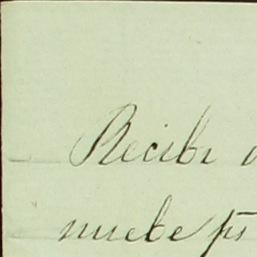 Recibi
nuebe ps